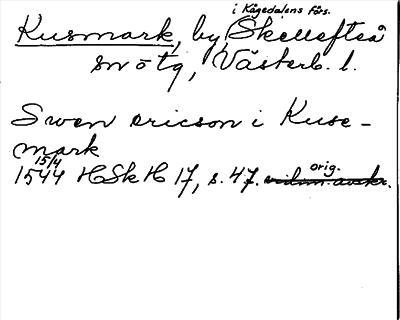 i Kågedalens förs.
Kusmark, by, Skellefteå
sn ö tg, Västerb. l.
Swen ericson i Kuse-
mark
15/4
orig.
1544 HSkH 17, s. 47. vidim. avskr.